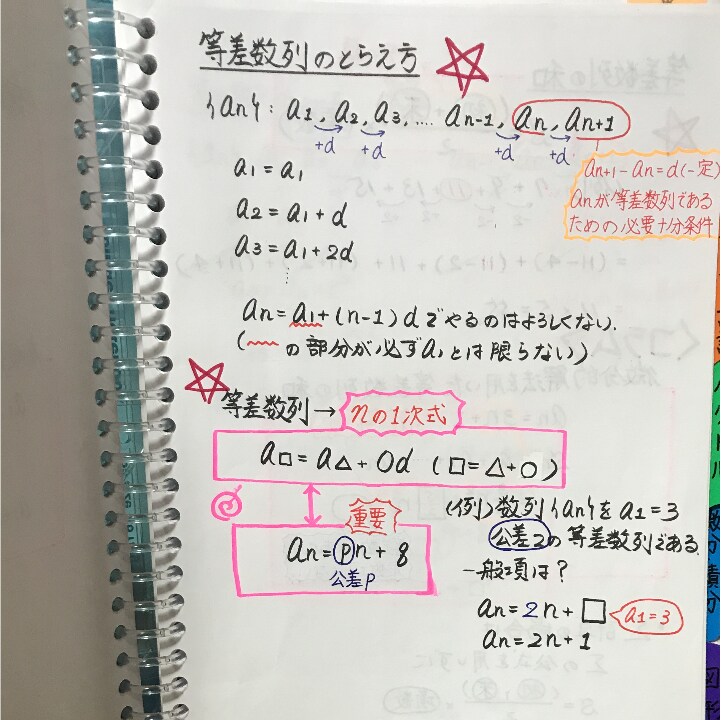 等差数列のとらえ方
{an}: a1, a2, a3, .... an-1, an, an+1
+d +d +d +d
an+1-an=d(一定)
anが等差数列である
ための必要十分条件
a1=a1
a2=a1+d
a3=a1+2d
⋮
an=a1+(n-1)dでやるのはよろしくない.
(〰の部分が必ずa1とは限らない)
等差数列→ nの1次式
a□=a△+○d (□=△+○)
重要
an=pn+q
公差p
(例)数列{an}をa1=3
公差2の等差数列である.
一般項は?
an=2n+□ a1=3
an=2n+1